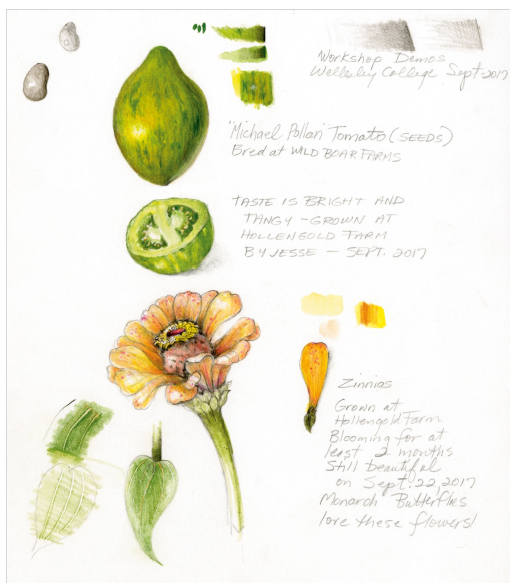 Workshop Demos
Wellesley College Sept 2017
"Michael Pollan" Tomato (SEEDS)
Bred at WILD BOAR FARMS
TASTE IS BRIGHT AND
TANGY - GROWN AT
HOLLENGOLD FARM
BY JESSE - SEPT. 2017
Zinnias
Grown at
Hollengold Farm
Blooming for at
least 2 months
Still beautiful
on Sept. 22, 2017
Monarch Butterflies
love these flowers!